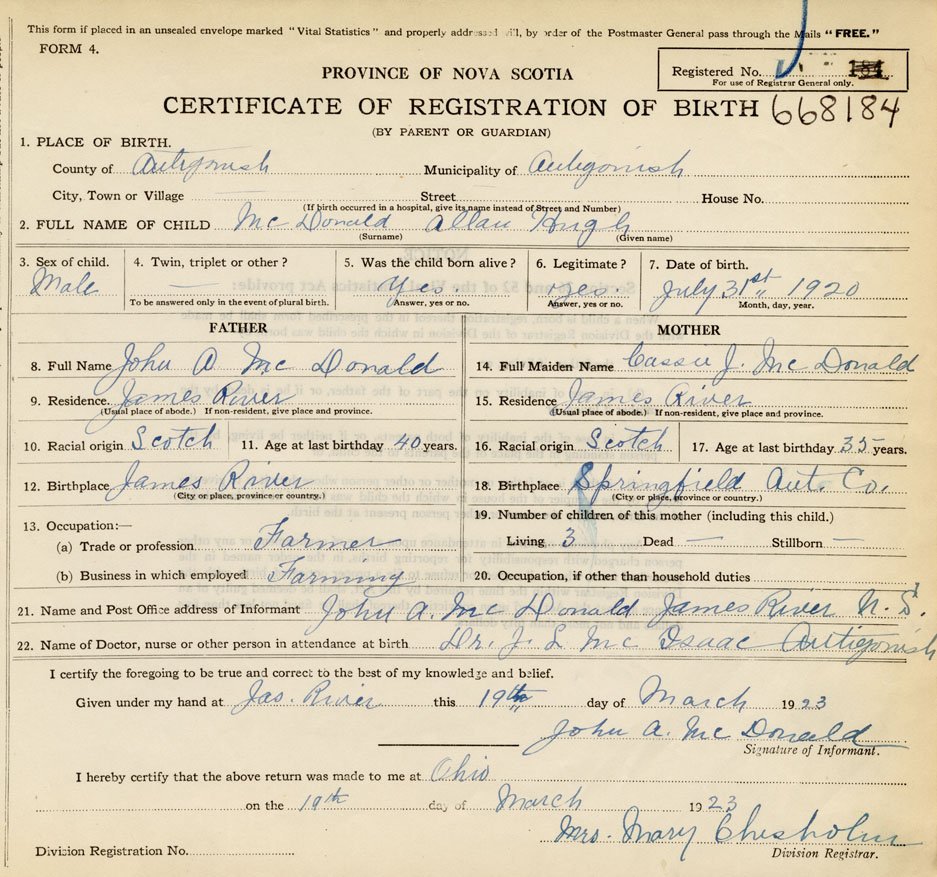 This form if placed in an unsealed envelope marked "Vital Statistics" and properly addressed will, by order of the Postmaster General pass through the Mails "FREE."
FORM 4.
Registered No. 184
For use of Registrar General only.
PROVINCE OF NOVA SCOTIA
CERTIFICATE OF REGISTRATION OF BIRTH 668184
(BY PARENT OR GUARDIAN)
1. PLACE OF BIRTH.
County of Antigonish Municipality of Antigonish
City, Town or Village Street House No.
(If birth occurred in a hospital, give its name instead of Street and Number)
2. FULL NAME OF CHILD Mc Donald Allan Hugh
(Surname) (Given name)
3. Sex of child. 4. Twin, triplet or other? 5. Was the child born alive? 6. Legitimate? 7. Date of birth.
Male — Yes. Yes. July 31st 1920
To be answered only in the event of plural birth. Answer, yes or no. Answer, yes or no. Month, day, year.
FATHER MOTHER
8. Full Name John A Mc Donald 14. Full Maiden Name Cassie J. Mc Donald
9. Residence James River 15. Residence James River
(Usual place of abode.) If non-resident, give place and province. (Usual place of abode.) If non-resident, give place and province.
10. Racial origin Scotch 11. Age at last birthday 40 years. 16. Racial origin Scotch 17. Age at last birthday 35 years.
12. Birthplace James River 18. Birthplace Springfield Ant. Co.
(City or place, province or country.) (City or place, province or country.)
13. Occupation:— 19. Number of children of this mother (including this child.)
(a) Trade or profession Farmer Living 3 Dead — Stillborn —
(b) Business in which employed Farming 20. Occupation, if other than household duties
21. Name and Post Office address of Informant John A. Mc Donald James River N. S.
22. Name of Doctor, nurse or other person in attendance at birth Dr. J. L Mc Isaac Antigonish
I certify the foregoing to be true and correct to the best of my knowledge and belief.
Given under my hand at Jas. River this 19th day of March 1923
John A. Mc Donald
Signature of Informant.
I hereby certify that the above return was made to me at Ohio
on the 19th day of March 1923
Mrs. Mary Chisholm
Division Registration No. Division Registrar.